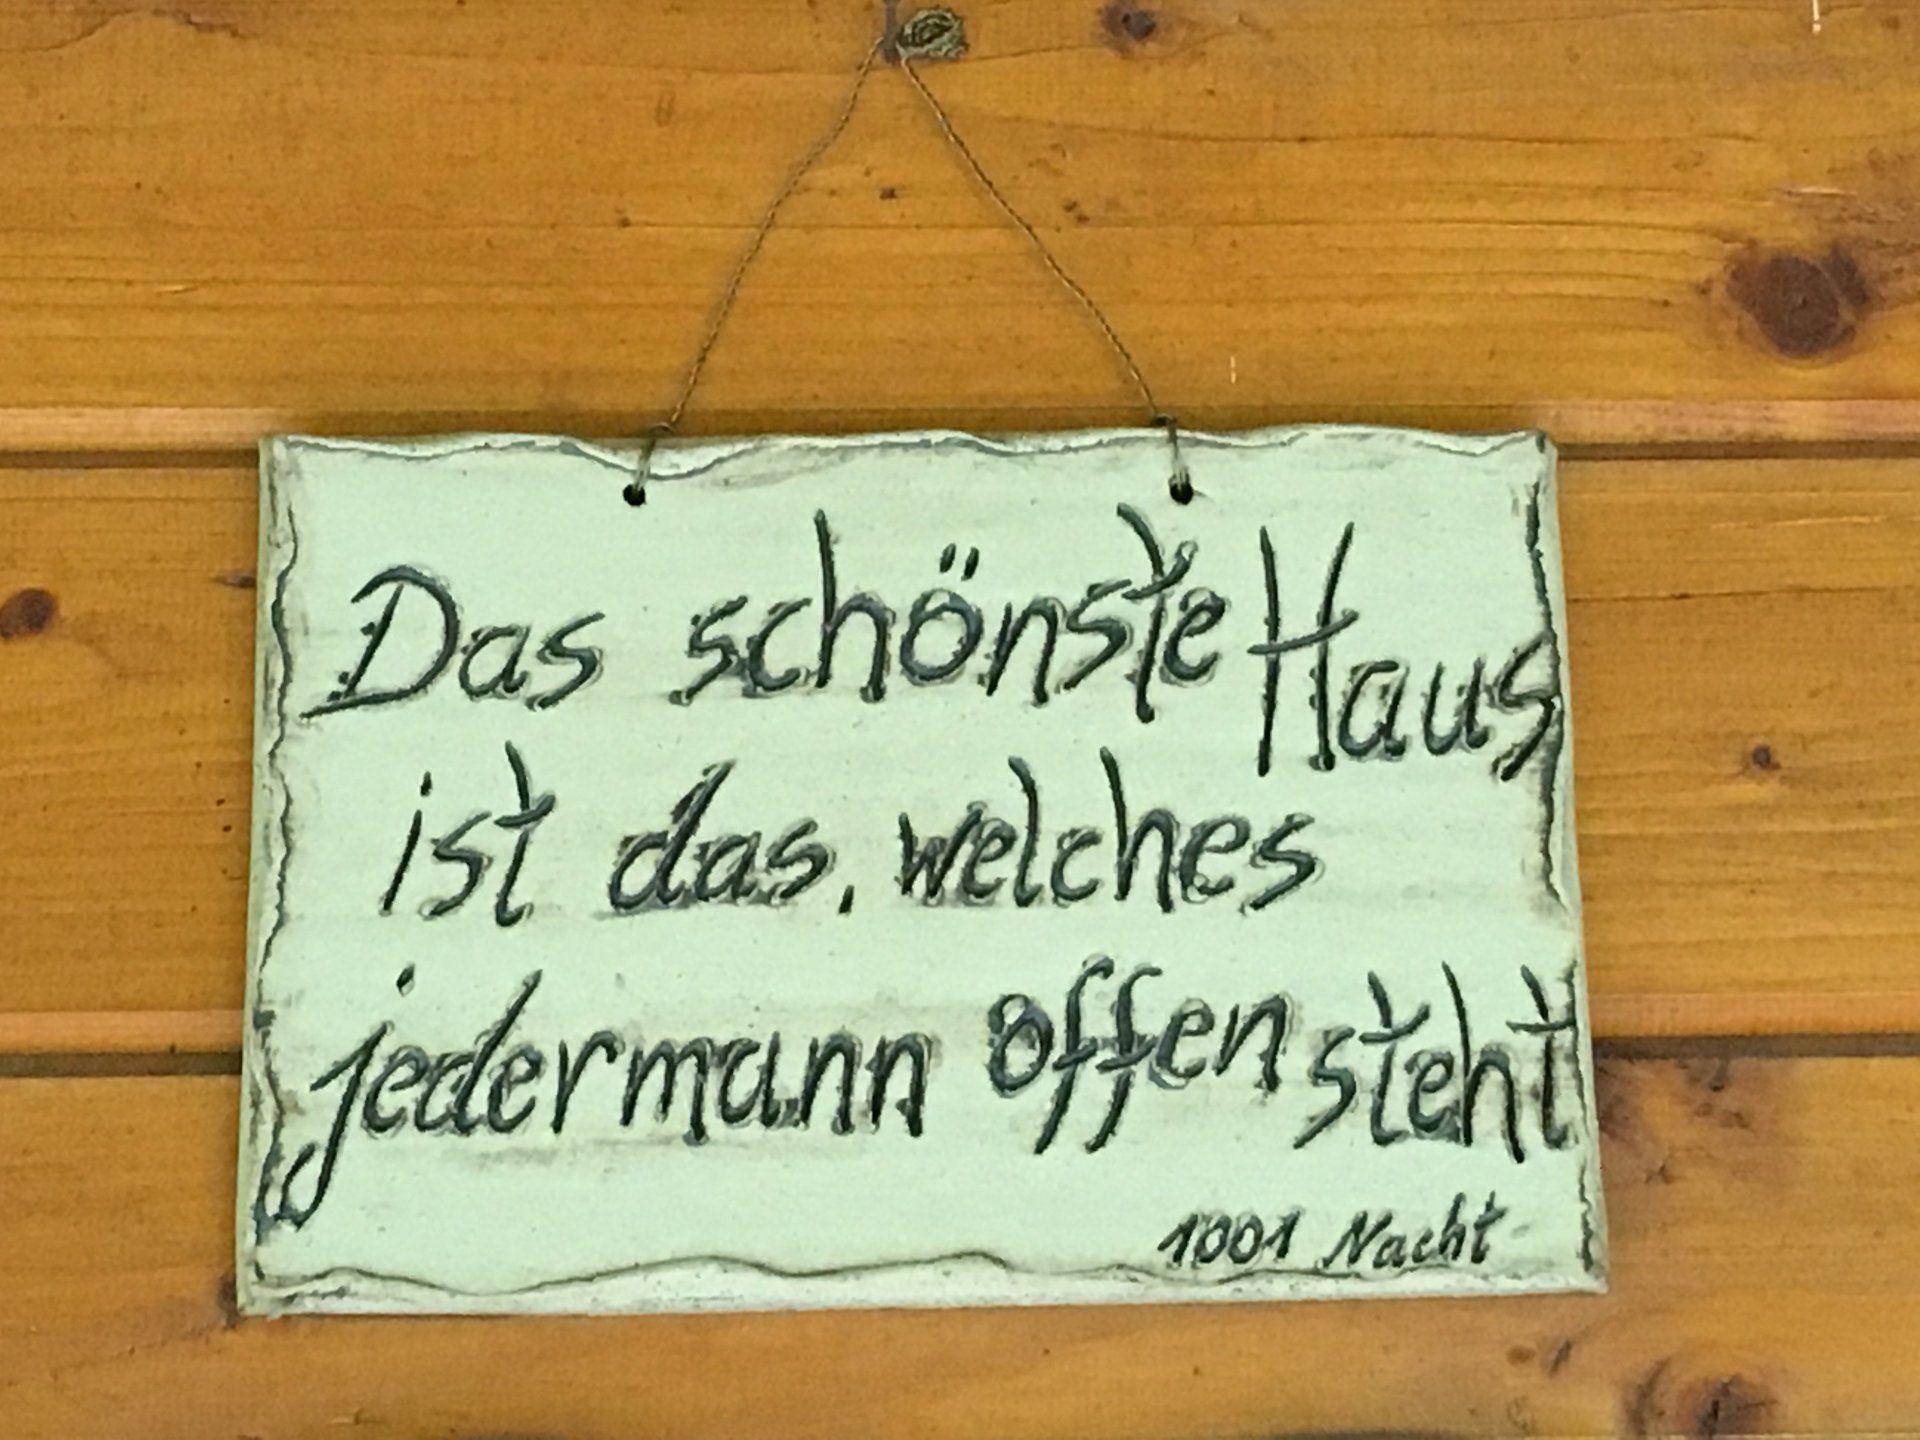 Das schönste Haus
ist das, welches
jedermann offen steht
1001 Nacht